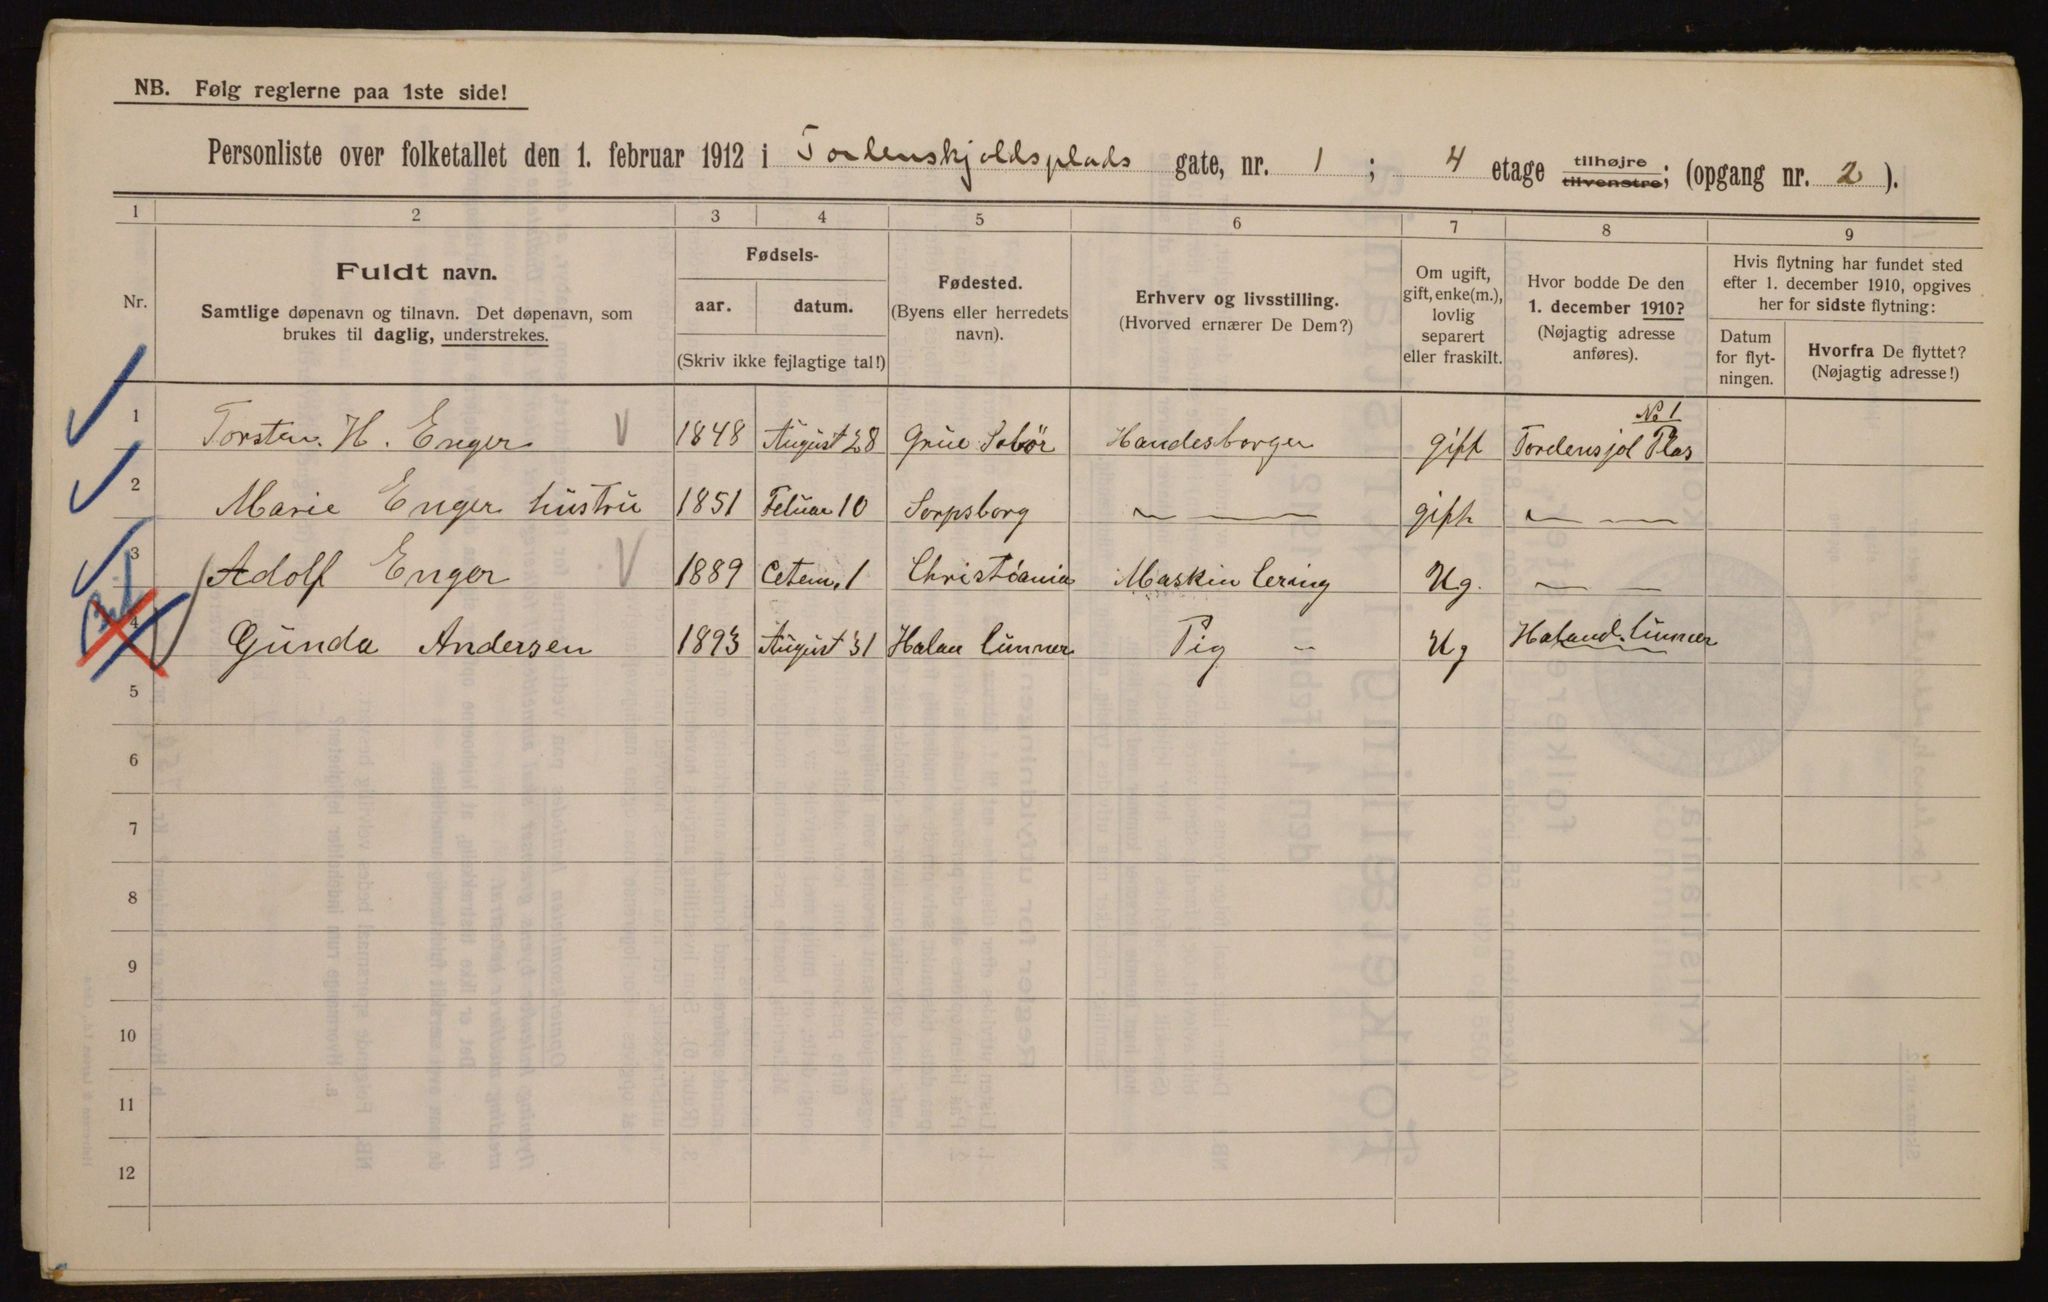 NB. Følg reglerne paa 1ste side!
Personliste over folketallet den 1. februar 1912 i Tordenskjoldsplads gate, nr. 1; 4 etage tilhøjre tilvenstre; (opgang nr. 2).
1 2 3 4 5 6 7 8 9
Nr.
Fuldt navn.
Samtlige døpenavn og tilnavn. Det døpenavn, som
brukes til daglig, understrekes.
Fødsels-
aar. datum.
(Skriv ikke fejlagtige tal!)
Fødested.
(Byens eller herredets
navn).
Erhverv og livsstilling.
(Hvorved ernærer De Dem?)
Om ugift,
gift, enke(m.),
lovlig
separert
eller fraskilt.
Hvor bodde De den
1. december 1910?
(Nøjagtig adresse
anføres).
Hvis flytning har fundet sted
efter 1. december 1910, opgives
her for sidste flytning:
Datum
for flyt-
ningen.
Hvorfra De flyttet?
(Nøjagtig adresse!)
No 1
1 Torsten. H. Enger 1848 August 28 Grue Solør Handesborger gift Tordensjol Plas
2 Marie Enger hustru 1851 Feluar 10 Sarpsborg — — gift — —
3 Adolf Enger 1889 Cetem. 1 Christiania Maskin lering Ug. — —
4 Gunda Andersen 1893 August 31 Halan lunner Pig — Ug Haland. lunner
5
6
7
8
9
10
11
12